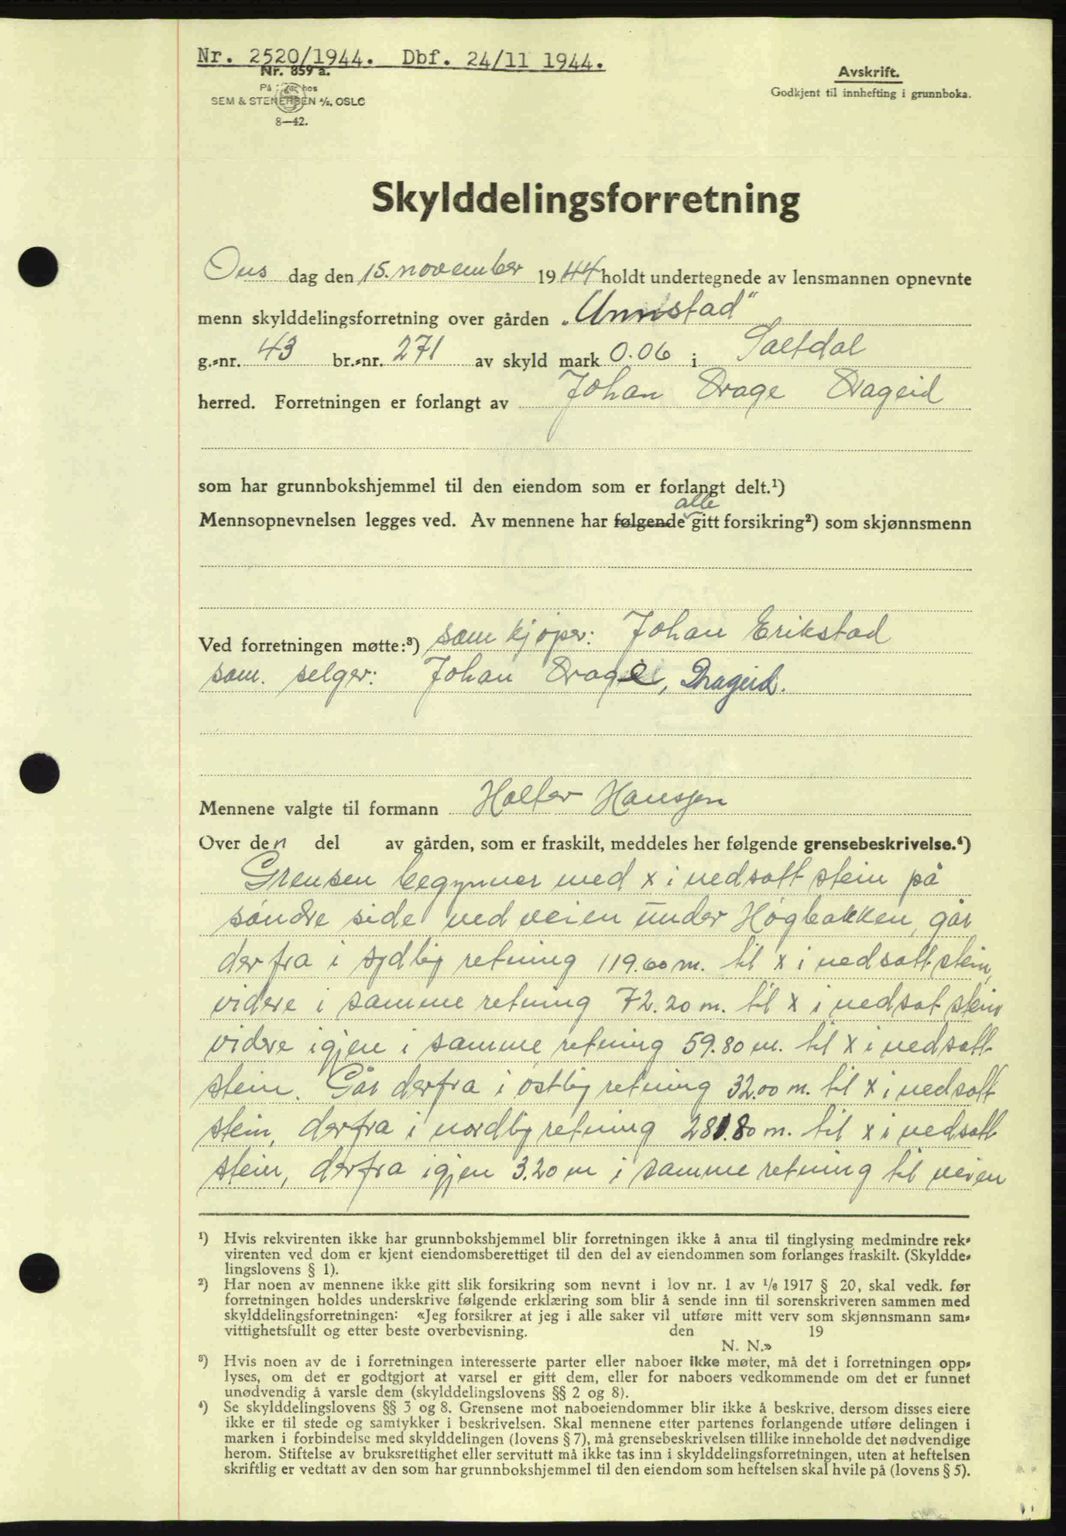 Nr. 2520/1944. Dbf. 24/11 1944.
Nr. 859 a.
SEM & STENERSEN A/S, OSLO
8—42.
Avskrift.
Godkjent til innhefting i grunnboka.
Skylddelingsforretning
Ons dag den 15. november 1944 holdt undertegnede av lensmannen opnevnte
menn skylddelingsforretning over gården „Unnstad"
g.-nr. 43 br.-nr. 271 av skyld mark 0.06 i Saltdal
herred. Forretningen er forlangt av Johan Drage Drageid
som har grunnbokshjemmel til den eiendom som er forlangt delt.¹)
alle
Mennsopnevnelsen legges ved. Av mennene har følgende gitt forsikring²) som skjønnsmenn
Ved forretningen møtte:³) som kjøper: Johan Erikstad
som. selger: Johan Drage, Drageid.
Mennene valgte til formann Halfar Hanssen
Over den del av gården, som er fraskilt, meddeles her følgende grensebeskrivelse.⁴)
Grensen begynner med x i nedsatt stein på
søndre side ved veien under Høgbakken, går
derfra i sydlig retning 119.60 m. til x i nedsatt stein,
videre i samme retning 72.20 m. til x i nedsat stein
vidre igjen i samme retning 59.80 m. til x i nedsatt
stein. Går derfra i østlig retning 32.00 m. til x i nedsatt
stein, derfra i nordlig retning 281.80 m. til x i nedsatt
stein, derfra igjen 3.20 m i samme retning til veien
¹) Hvis rekvirenten ikke har grunnbokshjemmel blir forretningen ikke å anta til tinglysing medmindre rek-
virenten ved dom er kjent eiendomsberettiget til den del av eiendommen som forlanges fraskilt. (Skyldde-
lingslovens § 1).
²) Har noen av mennene ikke gitt slik forsikring som nevnt i lov nr. 1 av 1/6 1917 § 20, skal vedk. før
forretningen holdes underskrive følgende erklæring som blir å sende inn til sorenskriveren sammen med
skylddelingsforretningen: «Jeg forsikrer at jeg i alle saker vil utføre mitt verv som skjønnsmann sam-
vittighetsfullt og etter beste overbevisning. den 19
N. N.»
³) Hvis noen av de i forretningen interesserte parter eller naboer ikke møter, må det i forretningen opp-
lyses, om det er godtgjort at varsel er gitt dem, eller for naboers vedkommende om det er funnet
unødvendig å varsle dem (skylddelingslovens §§ 2 og 8).
⁴) Se skylddelingslovens §§ 3 og 8. Grensene mot naboeiendommer blir ikke å beskrive, dersom disses eiere
ikke er til stede og samtykker i beskrivelsen. Skal mennene etter partenes forlangende utføre delingen i
marken i forbindelse med skylddelingen (lovens § 7), må grensebeskrivelsen tillike inneholde det nødvendige
herom. Stiftelse av bruksrettighet eller servitutt må ikke tas inn i skylddelingsforretningen, uten at heftelsen
skriftlig er vedtatt av den som har grunnbokshjemmel til den eiendom som heftelsen skal hvile på (lovens § 5).